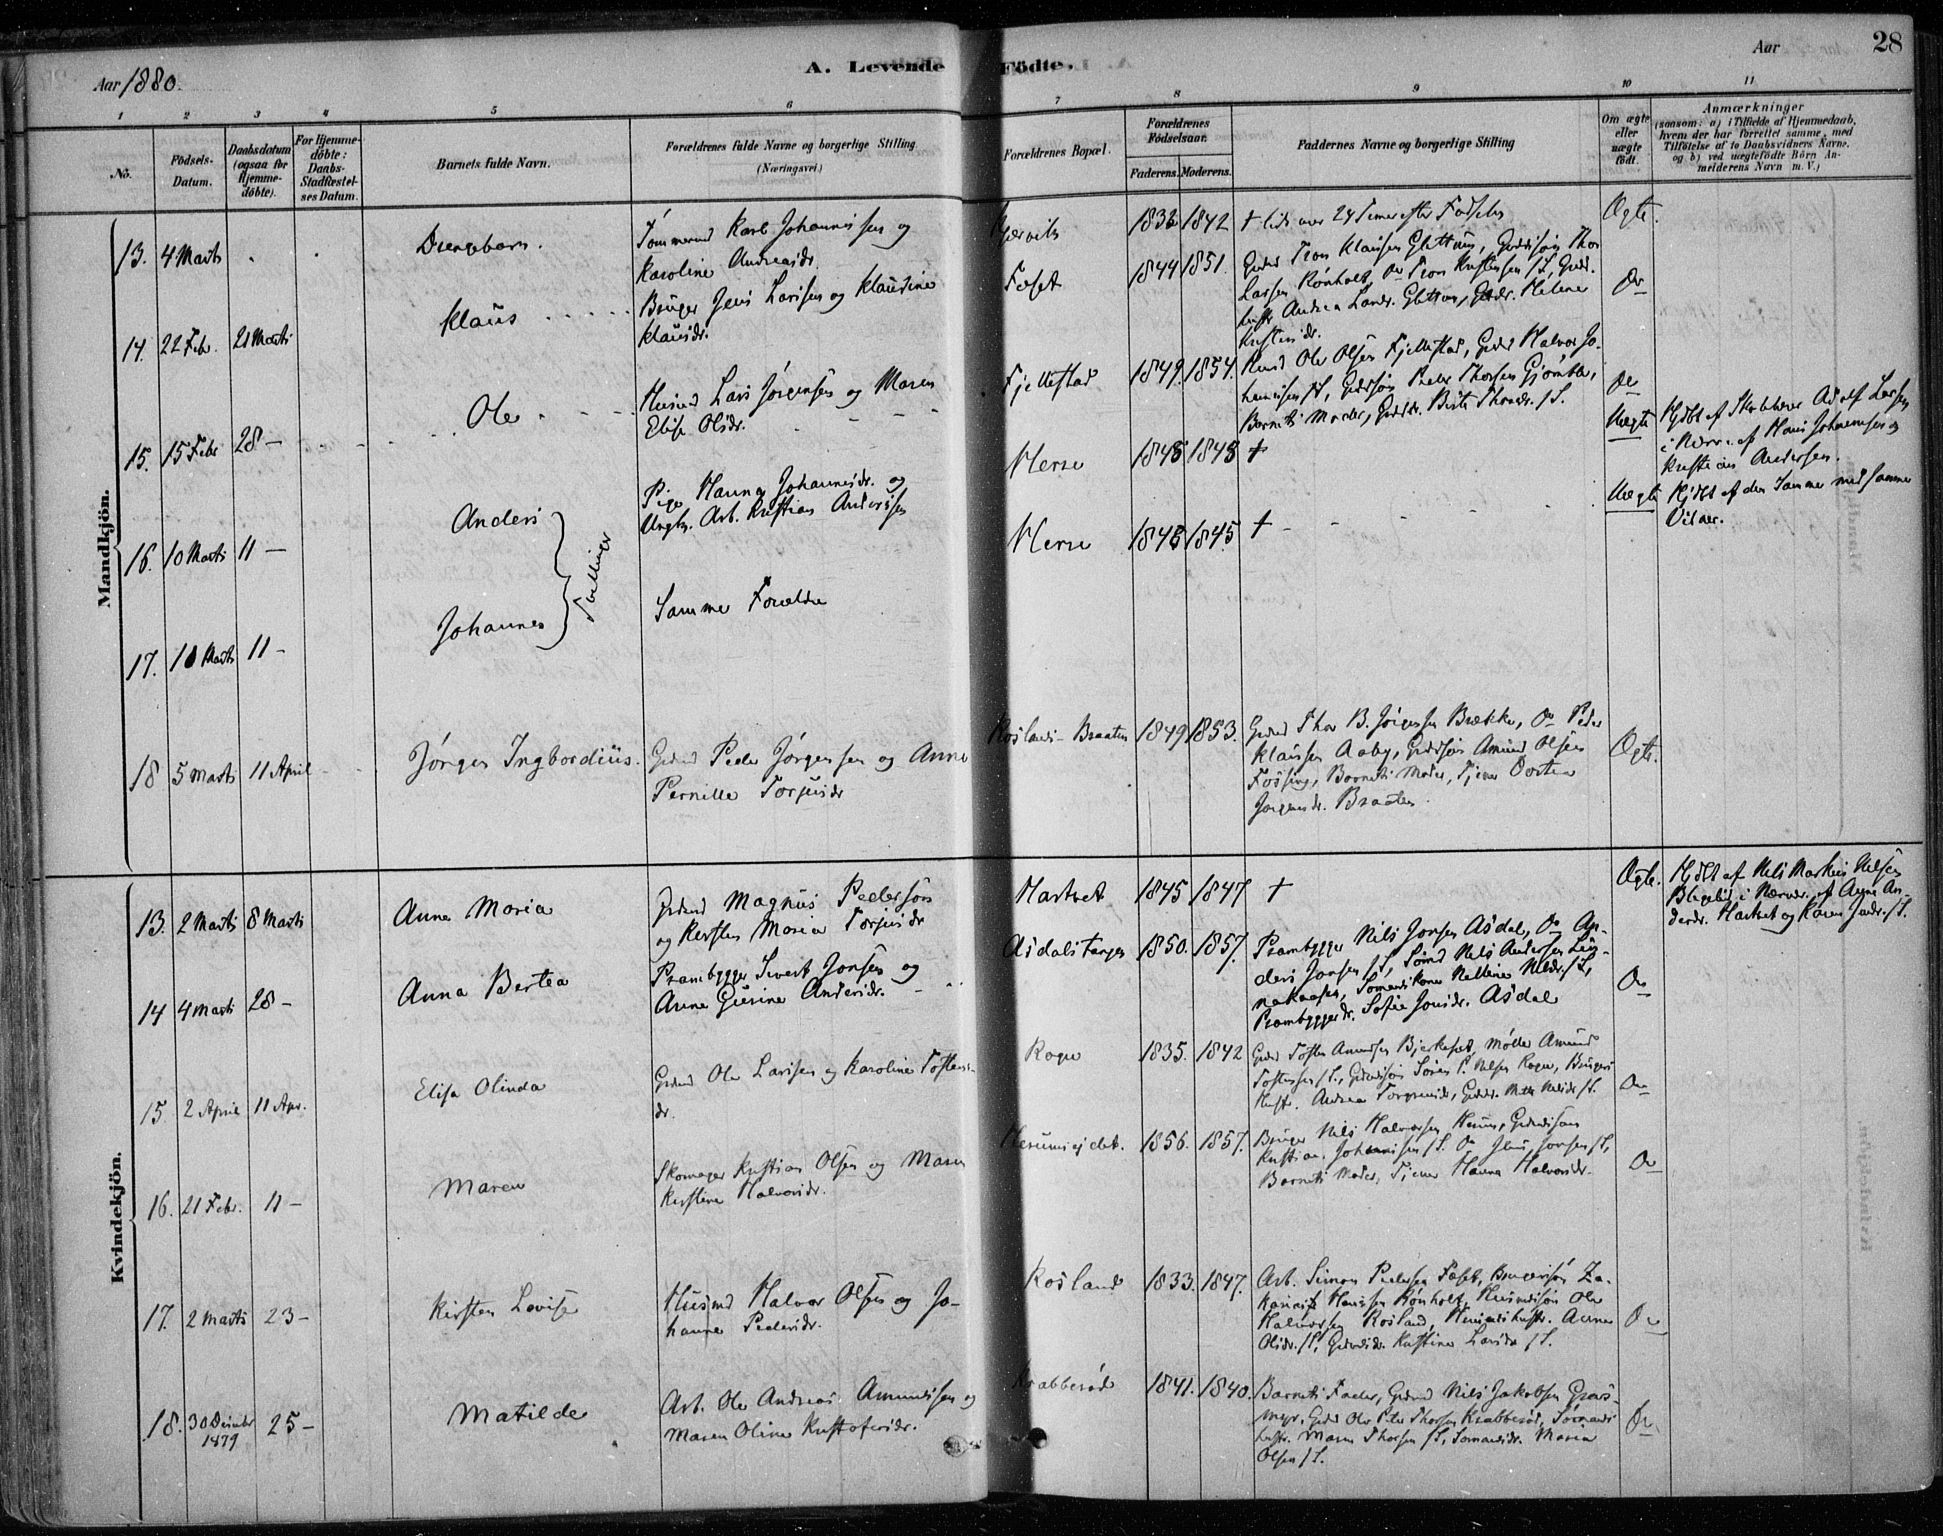 Aar 1880.
A. Levende Födte.
Aar
28
1
2
3
4
5
6
7
8
9
10
11
No.
Födsels-Datum.
Daabsdatum (ogsaa for Hjemme-döbte).
For Hjemme-döbte: Daabs-Stadfæstel-ses Datum.
Barnets fulde Navn.
Forældrenes fulde Navne og borgerlige Stilling
(Næringsvei.)
Forældrenes Bopæl.
Forældrenes Födselsaar.
Faderens.
Moderens.
Faddernes Navne og borgerlige Stilling
Om ægte eller uægte födt.
Anmærkninger
(saasom: a) i Tilfælde af Hjemmedaab,
hvem der har forrettet samme, med
Tilföielse af to Daabsvidners Navne.
og b) ved uægtefödte Börn An-
melderens Navn m. V.)
Mandkjön.
13. 4 Marts
Drengebarn.
Tømmermd Karl Johannissen og
Karoline Andreasdr.
1842
+ 24 Timer efter Fødselen
Ægte.
14. 22 Febr. 21 Marts
Klaus
Bruger Jens Larsen og Klausine
Klausdr.
Foset
1844 1851.
Grdmd Tron Klausen Glittum, Grdmdssøn Thor
Larsen Rønholt, Do Tron Kristensen /S.,
Hustr. Andrea Larsdr. Glittum, Helene
Kristensdr.
Do
15. 15 Febr 28 –
Ole
Husmd Lars Jørgensen og Maren
Elise Olsdr.
Fjellestad
1849. 1854.
Husmd Ole Olsen Fjellestad, Grdmd Halvor Jo-
hannesen /S., Grdmdssøn Peder Thorsen
Barnets Moder,
Do
16. 10 Marts 11 –
Anders
Tvillinger
Pige Hanna Johannesdr. og
Ungk. Arb. Kristian Andersen
Herre
+
Uægte
Hjdbt af Skolelærer Adolf Larsen
i Nærv. af Hans Johannesen og
Kristian Andersen.
17. 10 Marts 11 –
Johannes
Samme Forældre
Herre
1845
+
Uægte
Hjdbt af den Samme med samme
Vidner.
18 5 Marts 11 April
Jørgen Ingbordius.
Grdmd Peder Jørgensen og Anne
Pernille Torjusdr
Roslands-Braaten
1849 1853.
Grdmd Thor B. Jørgensen Brække, Do Peder
Klausen Aaby, Grdmdssøn Amund Olsen
Fossing, Barnets Moder, Tjener Dortea
Jørgensdr. Braaten.
Ægte.
Kvindekjön.
13. 2 Marts 8 Marts
Anne Maria
Grdmd Magnus Pedersen
og Kirsten Maria Torjusdr
Hartvet
1845 1847
+
Ægte.
Hjdbt af Nils Markus Nilsen
i Nærvær. af Anne An-
dersdr. Hartvet og Karen /S.
14 4 Marts 28 –
Anna Bertea
Prambygger Sivert Jonsen og
Anne Gurine Andersdr.
Asdalstangen
1850. 1857.
Prambygger Nils Jonsen Asdal, Do An-
ders Jonsen /S., Sømd Nils Andersen Lan-
Sømandskone Nelline Nilsdr. /S.,
Prambyggerdr. Sofie Jonsdr. Asdal
Do
15. 2 April 11 Apr.
Elise Olinda
Grdmd Ole Larsen og Karoline Tostens-
dr.
Rogn
1835. 1842
Grdmd Tosten Amundsen Bjerkeset, Møller Amund
Tostensen /S., Grdmdssøn Søren P. Nilsen Rogn, Brugers
Hustr. Andrea
Do
16. 21 Febr. 11 –
Maren
Skomager Kristian Olsen og Maren
Kirstine Halvorsdr.
Herumsejdet.
1856. 1857.
Bruger Nils Halvorsen Herum, Grdmdssøn
Kristian Johannesen /S. Do Jens Jonsen /S.,
Barnets Moder, Tjener Hanna Halvorsdr.
Do
17. 2 Marts 23 –
Kirsten Lovise
Husmd Halvor Olsen og Jo-
hanne Pedersdr.
Rosland
1833. 1847.
Arb. Simon Pedersen Foset, Brugersøn Za-
karias Hansen Rønholt, Husmdssøn Ole
Halvorsen Rosland, Husmdshustr. Anne
Olsdr. /S., Grdmdsdr. Kristine Larsdr /S.
Do
18. 30 Decmbr 1879 25 –
Matilde
Arb. Ole Andreas Amundsen og
Maren Oline Kristofersdr.
Krabberød
1841. 1840.
Barnets Fader, Grdmd Nils Jakobsen Gras-
myr, Grdmd Ole Peter Thorsen Krabberød, Sømands
hustr. Maren Thorsen /S., Sømandsdr. Maria
Olsen /S.
Do